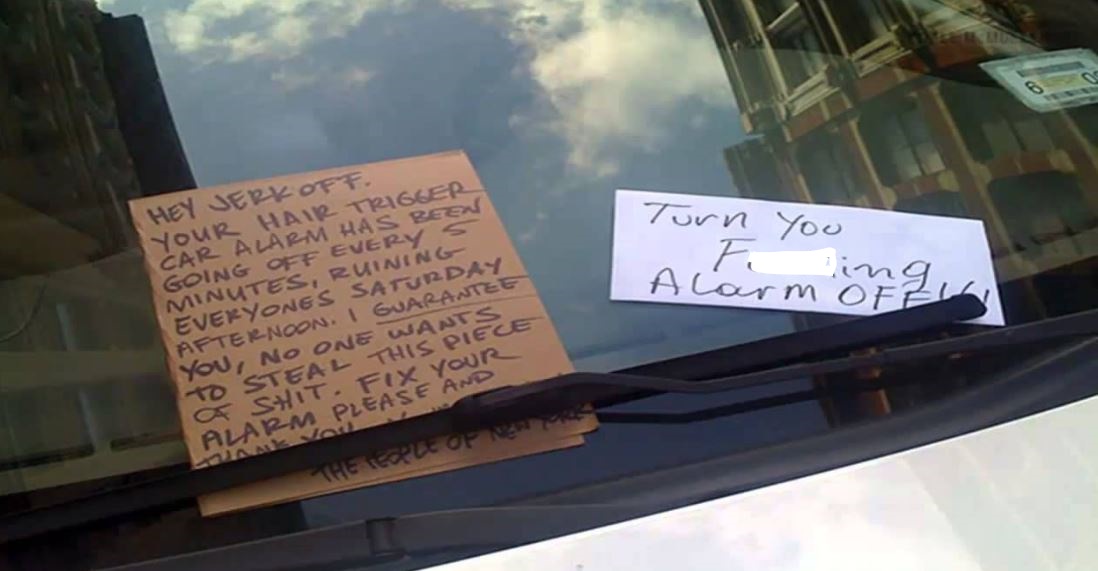 HEY JERKOFF.
YOUR HAIR TRIGGER
CAR ALARM HAS BEEN
GOING OFF EVERY 5
MINUTES, RUINING
EVERYONES SATURDAY
AFTERNOON. I GUARANTEE
YOU, NO ONE WANTS
TO STEAL THIS PIECE
OF SHIT. FIX YOUR
ALARM PLEASE AND
THANK YOU
THE PEOPLE OF NEW YORK
Turn You
F ing
Alarm OFF!!!
6